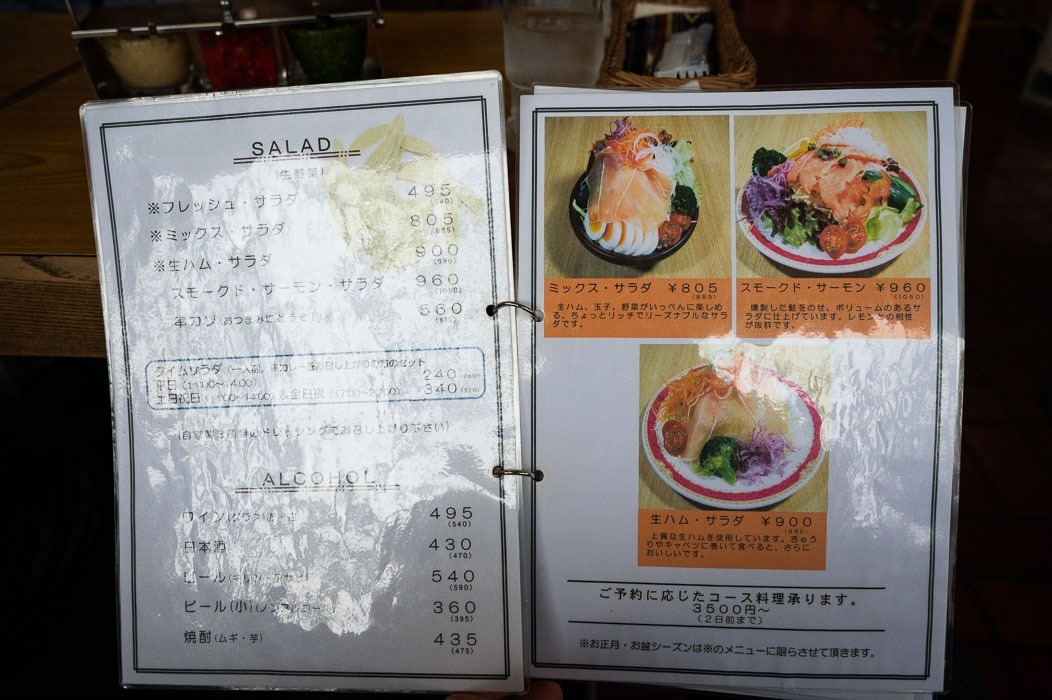 SALAD
(生野菜)
※フレッシュ・サラダ 495
(540)
※ミックス・サラダ 805
(885)
※生ハム・サラダ 900
(990)
スモークド・サーモン・サラダ 960
(1050)
560
(615)
タイムサラダ(一人前) ※カレー
平日(11:00~14:00) 240(260)
土日祝日(11:00~14:00)&全日夜(17:00~ 340(370)
ドレッシングでお召し上がり下さい)
ALCOHOL
ワイン 495
(540)
日本酒 430
(470)
ビール(キリン・アサヒ) 540
(590)
ビール(小)(ノンアルコール) 360
(395)
焼酎(ムギ・芋) 435
(475)
ミックス・サラダ ¥805
(885)
生ハム、玉子、野菜がいっぺんに楽しめ
る、ちょっとリッチでリーズナブルなサラ
ダです。
スモークド・サーモン ¥960
(1050)
燻製した鮭をのせ、ボリュームのあるサ
ラダに仕上げています。レモンとの相性
が抜群です。
生ハム・サラダ ¥900
(990)
上質な生ハムを使用しています。きゅう
りやキャベツに巻いて食べると、さらに
おいしいです。
ご予約に応じたコース料理承ります。
3500円~
(2日前まで)
※お正月・お盆シーズンは※のメニューに限らさせて頂きます。